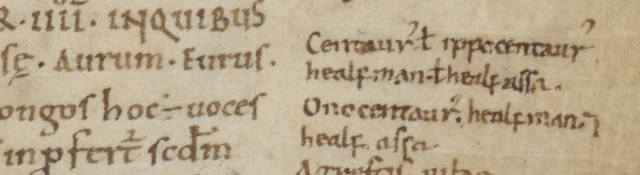 R · IIII · INQUIBUS
sę · Aurum · Eurus ·
ongos hoc ÷ uoces
inpfert scdm
Centaur' ł ippocentaur'
healf man ł healf assa .
Onocentaur' . healf man . ⁊
healf assa